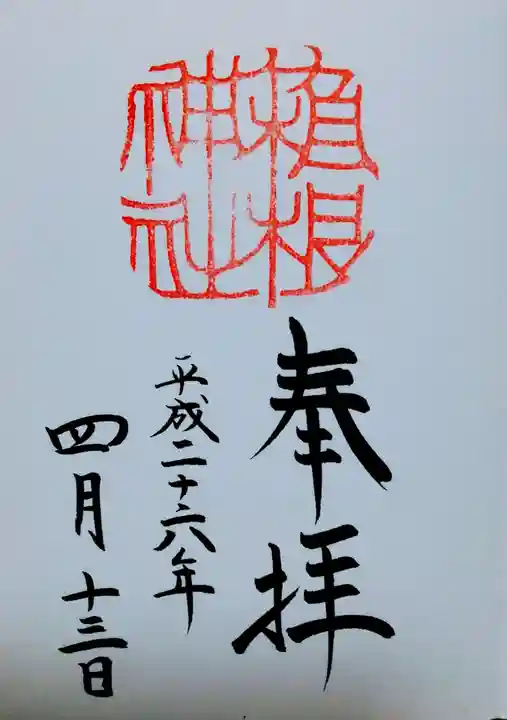 植根
神社
奉拝
平成二十六年
四月十三日